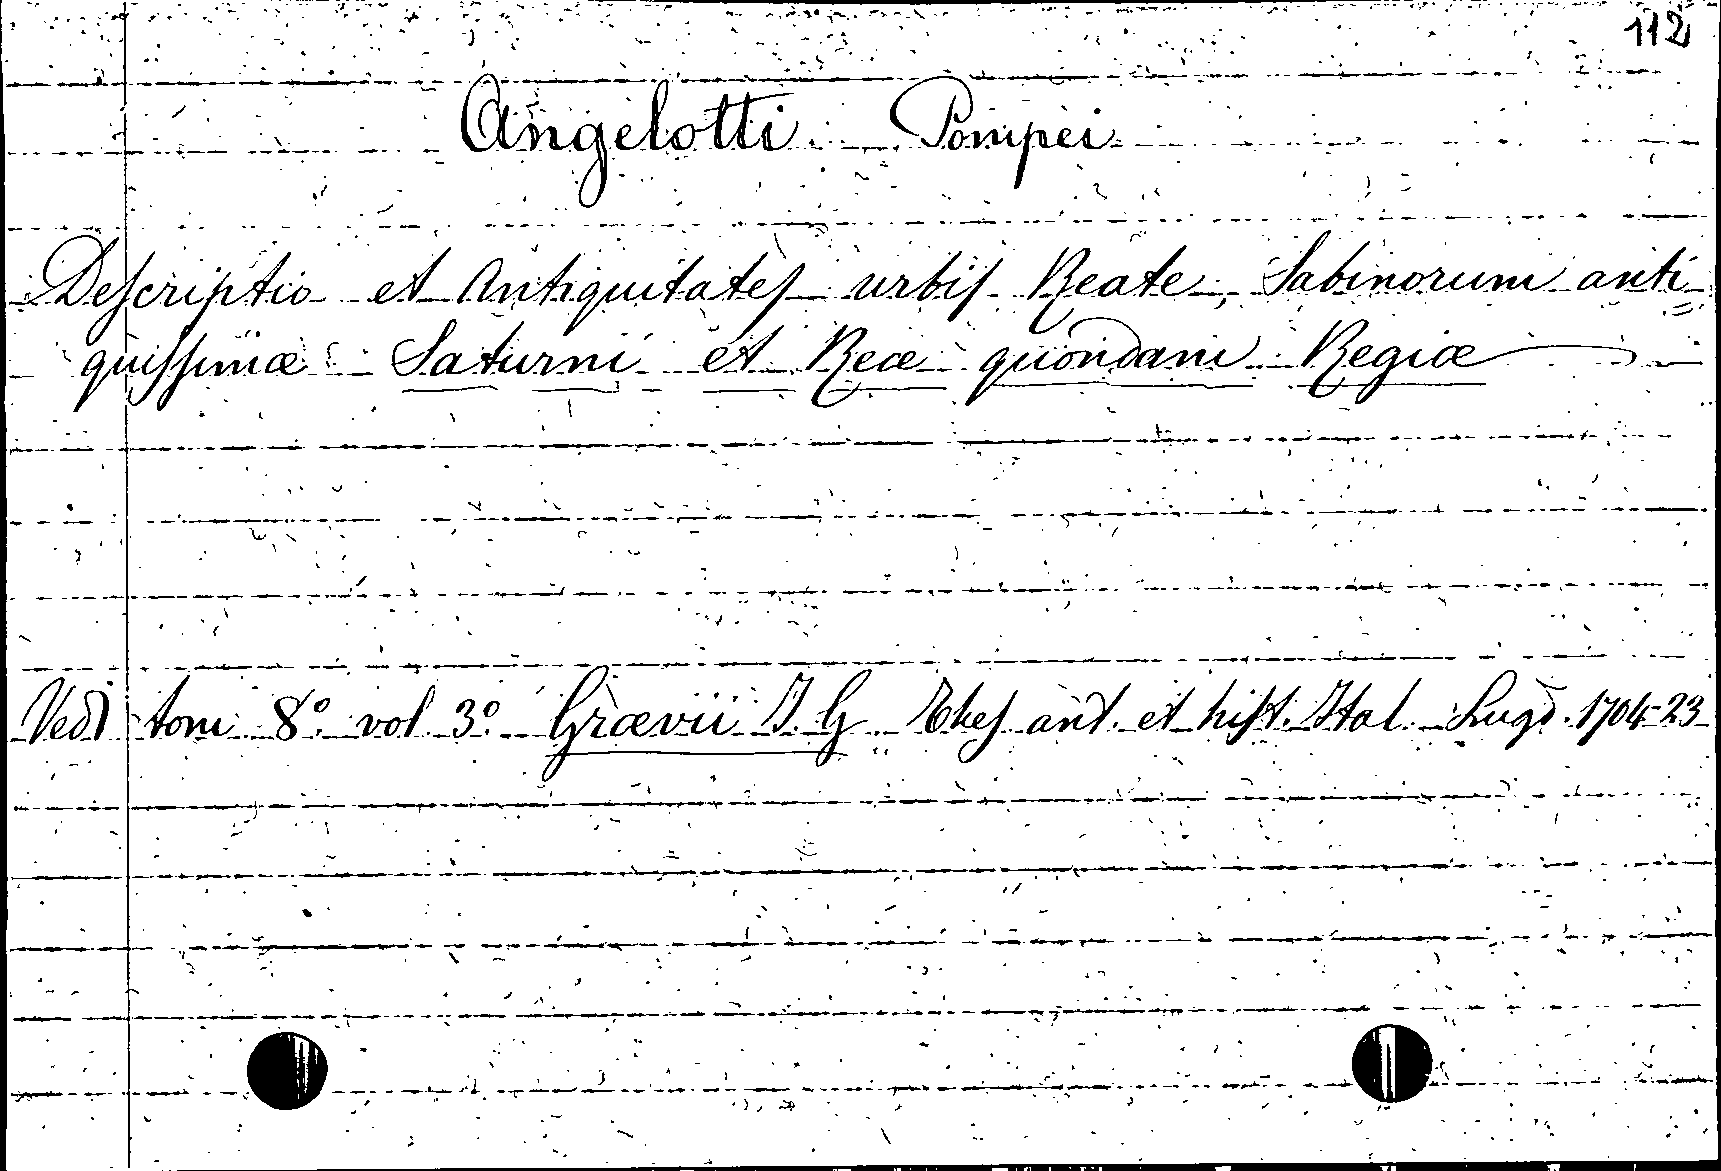 112
Angelotti Pompei
Descriptio et Antiquitates urbis Reate, Sabinorum anti-
quissimæ Saturni et Reæ quondam Regiæ
Vedi tom 8º vol 3º Grævii J. G. Thes ant. et hist. Ital. Lugd. 1704-23